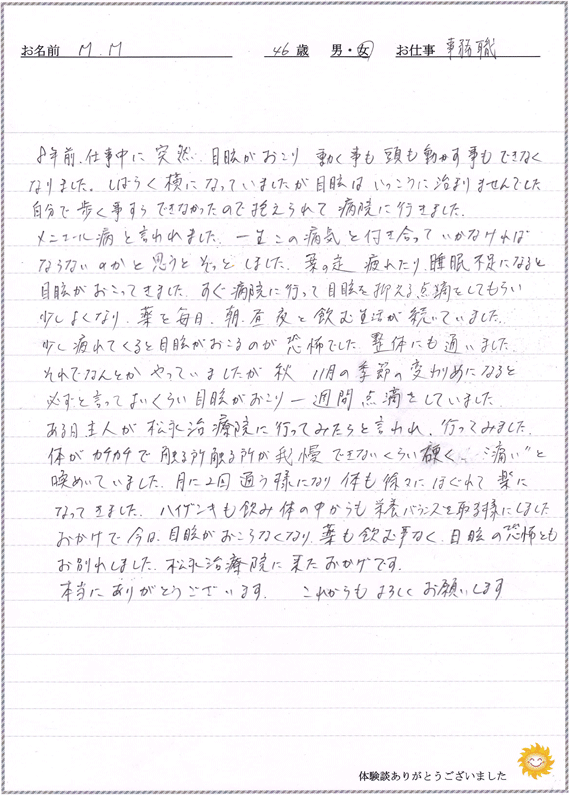 お名前 M.M 46歳 男・女 お仕事 事務職
8年前、仕事中に突然、目眩がおこり 動く事も頭も動かす事もできなく
なりました。しばらく横になっていましたが目眩はいっこうに治まりませんでした
自分で歩く事すらできなかったので抱えられて病院に行きました。
メニエール病と言われました。一生この病気と付き合っていかなければ
ならないのかと思うとぞっとしました。その後 疲れたり、睡眠不足になると
目眩がおこってきました。すぐ病院に行って目眩を抑える点滴をしてもらい
少しよくなり、薬を毎日、朝、昼、夜と飲む生活が続いていました。
少し疲れてくると目眩がおこるのが恐怖でした。整体にも通いました。
それでなんとかやっていましたが秋、11月の季節の変わりめになると
必ずと言っていいくらい目眩がおこり一週間点滴をしていました。
ある日主人が松永治療院に行ってみたらと言われ、行ってみました。
体がカチカチで触る所触る所が我慢できないくらい硬く、"痛い"と
喚めいていました。月に2回通う様になり体も徐々にほぐれて楽に
なってきました。ハイゲンキも飲み体の中からも栄養バランスを取る様にしました
おかげで今は、目眩がおこらなくなり、薬も飲む事なく、目眩の恐怖とも
お別れしました。松永治療院に来たおかげです。
本当にありがとうございます。 これからもよろしくお願いします
体験談ありがとうございました